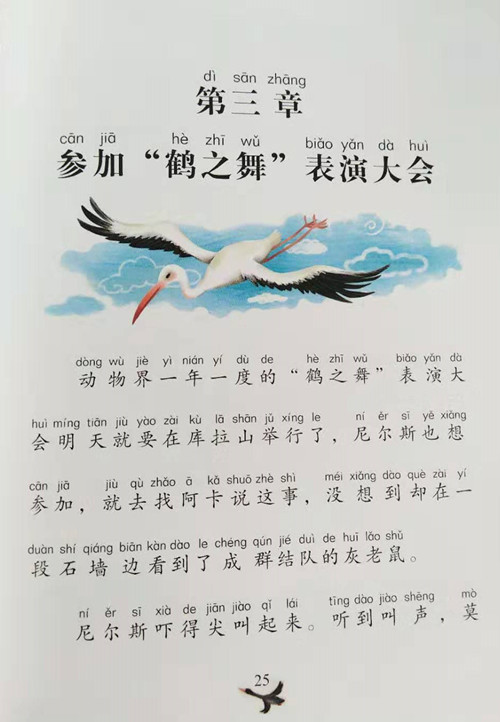 dì sān zhāng
第三章
cān jiā hè zhī wǔ biǎo yǎn dà huì
参加“鹤之舞”表演大会
dòng wù jiè yì nián yí dù de hè zhī wǔ biǎo yǎn dà
动物界一年一度的“鹤之舞”表演大
huì míng tiān jiù yào zài kù lā shān jǔ xíng le ní ěr sī yě xiǎng
会明天就要在库拉山举行了，尼尔斯也想
cān jiā jiù qù zhǎo ā kǎ shuō zhè shì méi xiǎng dào què zài yí
参加，就去找阿卡说这事，没想到却在一
duàn shí qiáng biān kàn dào le chéng qún jié duì de huī lǎo shǔ
段石墙边看到了成群结队的灰老鼠。
ní ěr sī xià de jiān jiào qǐ lái tīng dào jiào shēng mò
尼尔斯吓得尖叫起来。听到叫声，莫
25